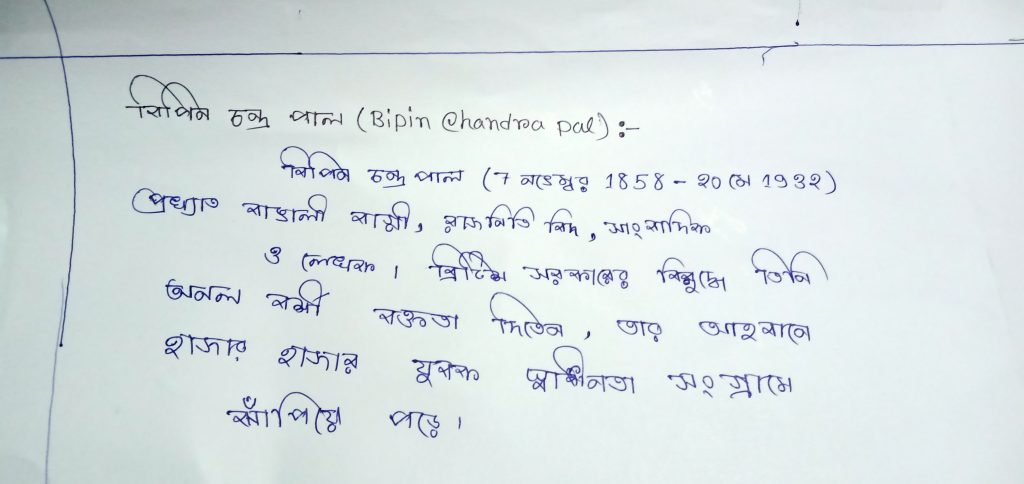 বিপিন চন্দ্র পাল (Bipin Chandra pal) :-
বিপিন চন্দ্র পাল (7 নভেম্বর 1858 - 20 মে 1932)
প্রখ্যাত বাঙালী বাগ্মী, রাজনিতি বিদ, সাংবাদিক
ও লেখক। ব্রিটিশ সরকারের বিরুদ্ধে তিনি
অনল বর্ষী বক্তৃতা দিতেন, তার আহবানে
হাজার হাজার যুবক স্বাধিনতা সংগ্রামে
ঝাঁপিয়ে পড়ে।